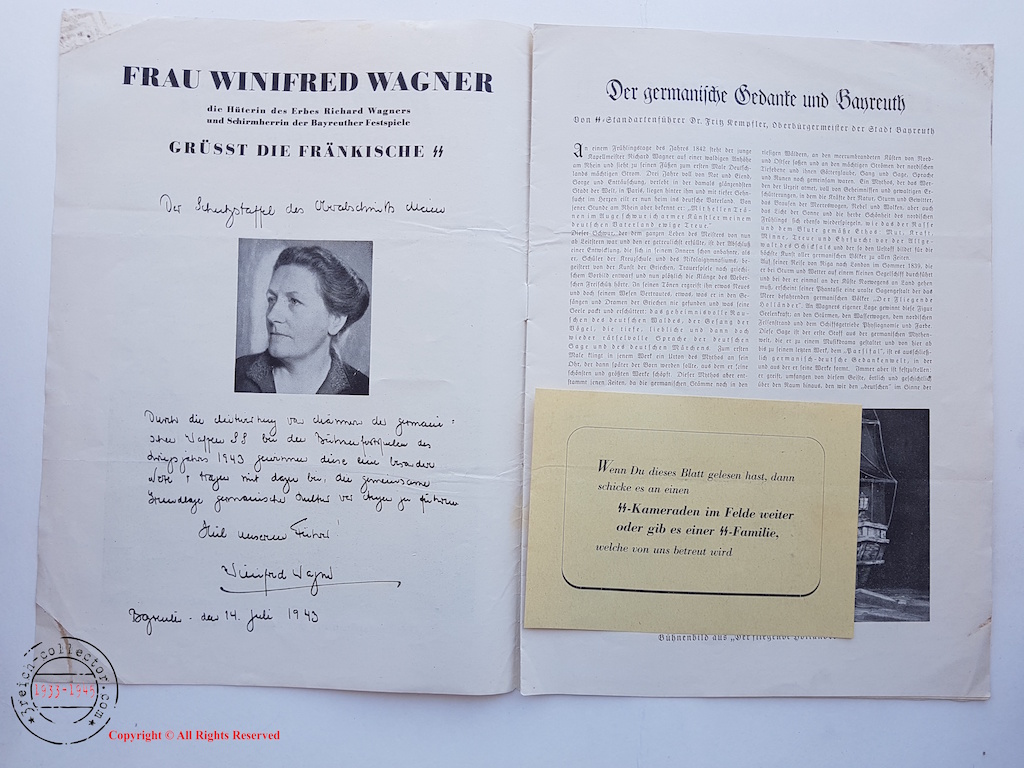 FRAU WINIFRED WAGNER
die Hüterin des Erbes Richard Wagners
und Schirmherrin der Bayreuther Festspiele
GRÜSST DIE FRÄNKISCHE ᛋᛋ
Der Schutzstaffel des Oberabschnitts Main
Durch die Mitwirkung von Männern der germani-
schen Waffen SS bei den Bühnenfestspielen des
Kriegsjahres 1943 gewinnen diese eine besondere
Note & tragen mit dazu bei, die gemeinsame
Grundlage germanischer Kultur vor Augen zu führen
Heil unserem Führer!
Winifred Wagner
Bayreuth - den 14. Juli 1943
Der germanische Gedanke und Bayreuth
Von ᛋᛋ-Standartenführer Dr. Fritz Kempfler, Oberbürgermeister der Stadt Bayreuth
An einem Frühlingstage des Jahres 1842 steht der junge
Kapellmeister Richard Wagner auf einer waldigen Anhöhe
am Rhein und sieht zu seinen Füßen zum ersten Male Deutsch-
lands mächtigen Strom. Drei Jahre voll von Not und Elend,
Sorge und Enttäuschung, verlebt in der damals glänzendsten
Stadt der Welt, in Paris, liegen hinter ihm und mit tiefer Sehn-
sucht im Herzen eilt er nun heim ins deutsche Vaterland. Von
jener Stunde am Rhein aber bekennt er: „Mit hellen Trä-
nen im Auge schwur ich armer Künstler meinem
deutschen Vaterland ewige Treue."
Dieser Schwur, der dem ganzen Leben des Meisters von nun
ab Leitstern war und den er getreulichst erfüllte, ist der Abschluß
einer Entwicklung, die sich in seinem Innern schon anbahnte, als
er, Schüler der Kreuzschule und des Nikolaigymnasiums, be-
geistert von der Kunst der Griechen, Trauerspiele nach griechi-
schem Vorbild entwarf und nun plötzlich die Klänge des Weber-
schen Freischütz hörte. In seinen Tönen ergreift ihn etwas Neues
und doch seinem Wesen Vertrautes, etwas, was er in den Ge-
sängen und Dramen der Griechen nie gefunden und was seine
Seele packt und erschüttert: das geheimnisvolle Rau-
schen des deutschen Waldes, der Gesang der
Vögel, die tiefe, liebliche und dann doch
wieder rätselvolle Sprache der deutschen
Sage und des deutschen Märchens. Zum ersten
Male klingt in jenem Werk ein Urton des Mythos an sein
Ohr, der dann später der Born werden sollte, aus dem er seine
schönsten und größten Werke schöpft. Dieser Mythos aber ent-
stammt jenen Zeiten, da die germanischen Stämme noch in den
riesigen Wäldern, an den meerumbrandeten Küsten von Nord-
und Ostsee saßen und an den mächtigen Strömen der nordischen
Tiefebene und ihnen Götterglaube, Sang und Sage, Sprache
und Runen noch gemeinsam waren. Ein Mythos, der das Wer-
den der Urzeit atmet, voll von Geheimnissen und gewaltigen Er-
schütterungen, in dem die Kräfte der Natur, Sturm und Gewitter,
das Brausen der Meereswogen, Nebel und Wolken, aber auch
das Licht der Sonne und die herbe Schönheit des nordischen
Frühlings sich ebenso wiederspiegeln, wie das der Rasse
und dem Blute gemäße Ethos: Mut, Kraft,
Minne, Treue und Ehrfurcht vor der Allge-
walt des Schicksals und der so den Urstoff bildet für die
höchste Kunst aller germanischen Völker zu allen Zeiten
Auf seiner Reise von Riga nach London im Sommer 1839, die
er bei Sturm und Wetter auf einem kleinen Segelschiff durchführt
und bei der er einmal an der Küste Norwegens an Land gehen
muß, erscheint seiner Phantasie eine uralte Sagengestalt der das
Meer befahrenden germanischen Völker „Der Fliegende
Holländer". An Wagners eigener Lage gewinnt diese Figur
Seelenkraft; an den Stürmen, den Wasserwogen, dem nordischen
Felsenstrand und dem Schiffsgetriebe Physiognomie und Farbe.
Diese Sage ist der erste Stoff aus der germanischen Mythen-
welt, die er zu einem Musikdrama gestaltet und von hier ab
bis zu seinem letzten Werk, dem „Parsifal", ist es ausschließ-
lich germanisch-deutsche Gedankenwelt, in der
und aus der er seine Werke formt. Immer aber ist festzustellen:
er greift, umfangen von diesem Geiste, örtlich und geschichtlich
über den Raum hinaus, den wir den „deutschen" im Sinne der
Wenn Du dieses Blatt gelesen hast, dann
schicke es an einen
ᛋᛋ-Kameraden im Felde weiter
oder gib es einer ᛋᛋ-Familie,
welche von uns betreut wird
Bühnenbild aus „Der fliegende Holländer
3reich-collector.com
1933-1945
Copyright © All Rights Reserved